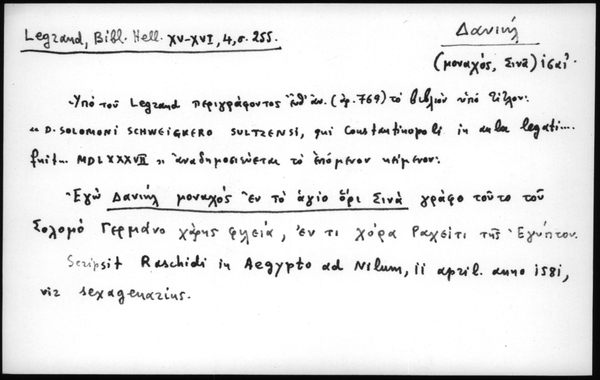 Legrand, Bibl. Hell. XV-XVI, 4, σ. 255.
Δανιήλ
(μοναχός, Σινᾶ) ις αἰ.
Ὑπό τοῦ Legrand περιγράφοντος ἐνθ' ἀν. (ἀρ. 769) τό βιβλίον ὑπό τίτλον:
"D. SOLOMONI SCHWEIGKERO SULTZENSI, qui Constantinopoli in aula legati...
fuit... MDLXXXVII" ἀναδημοσιεύεται τό ἑπόμενον κείμενον:
Ἐγώ Δανιήλ μοναχός ἐν τό ἁγίο ὄρι Σινᾶ γράφο τοῦτο τοῦ
Σολομό Γερμάνο χάρης φιλειά, ἐν τι χόρα Ραχείτι τῆς Ἐγύπτου.
Scripsit Raschidi in Aegypto ad Nilum, ii april. anno 1581,
vir sexagenarius.